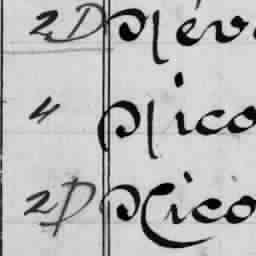 2D Név
" Nico
2D Nico